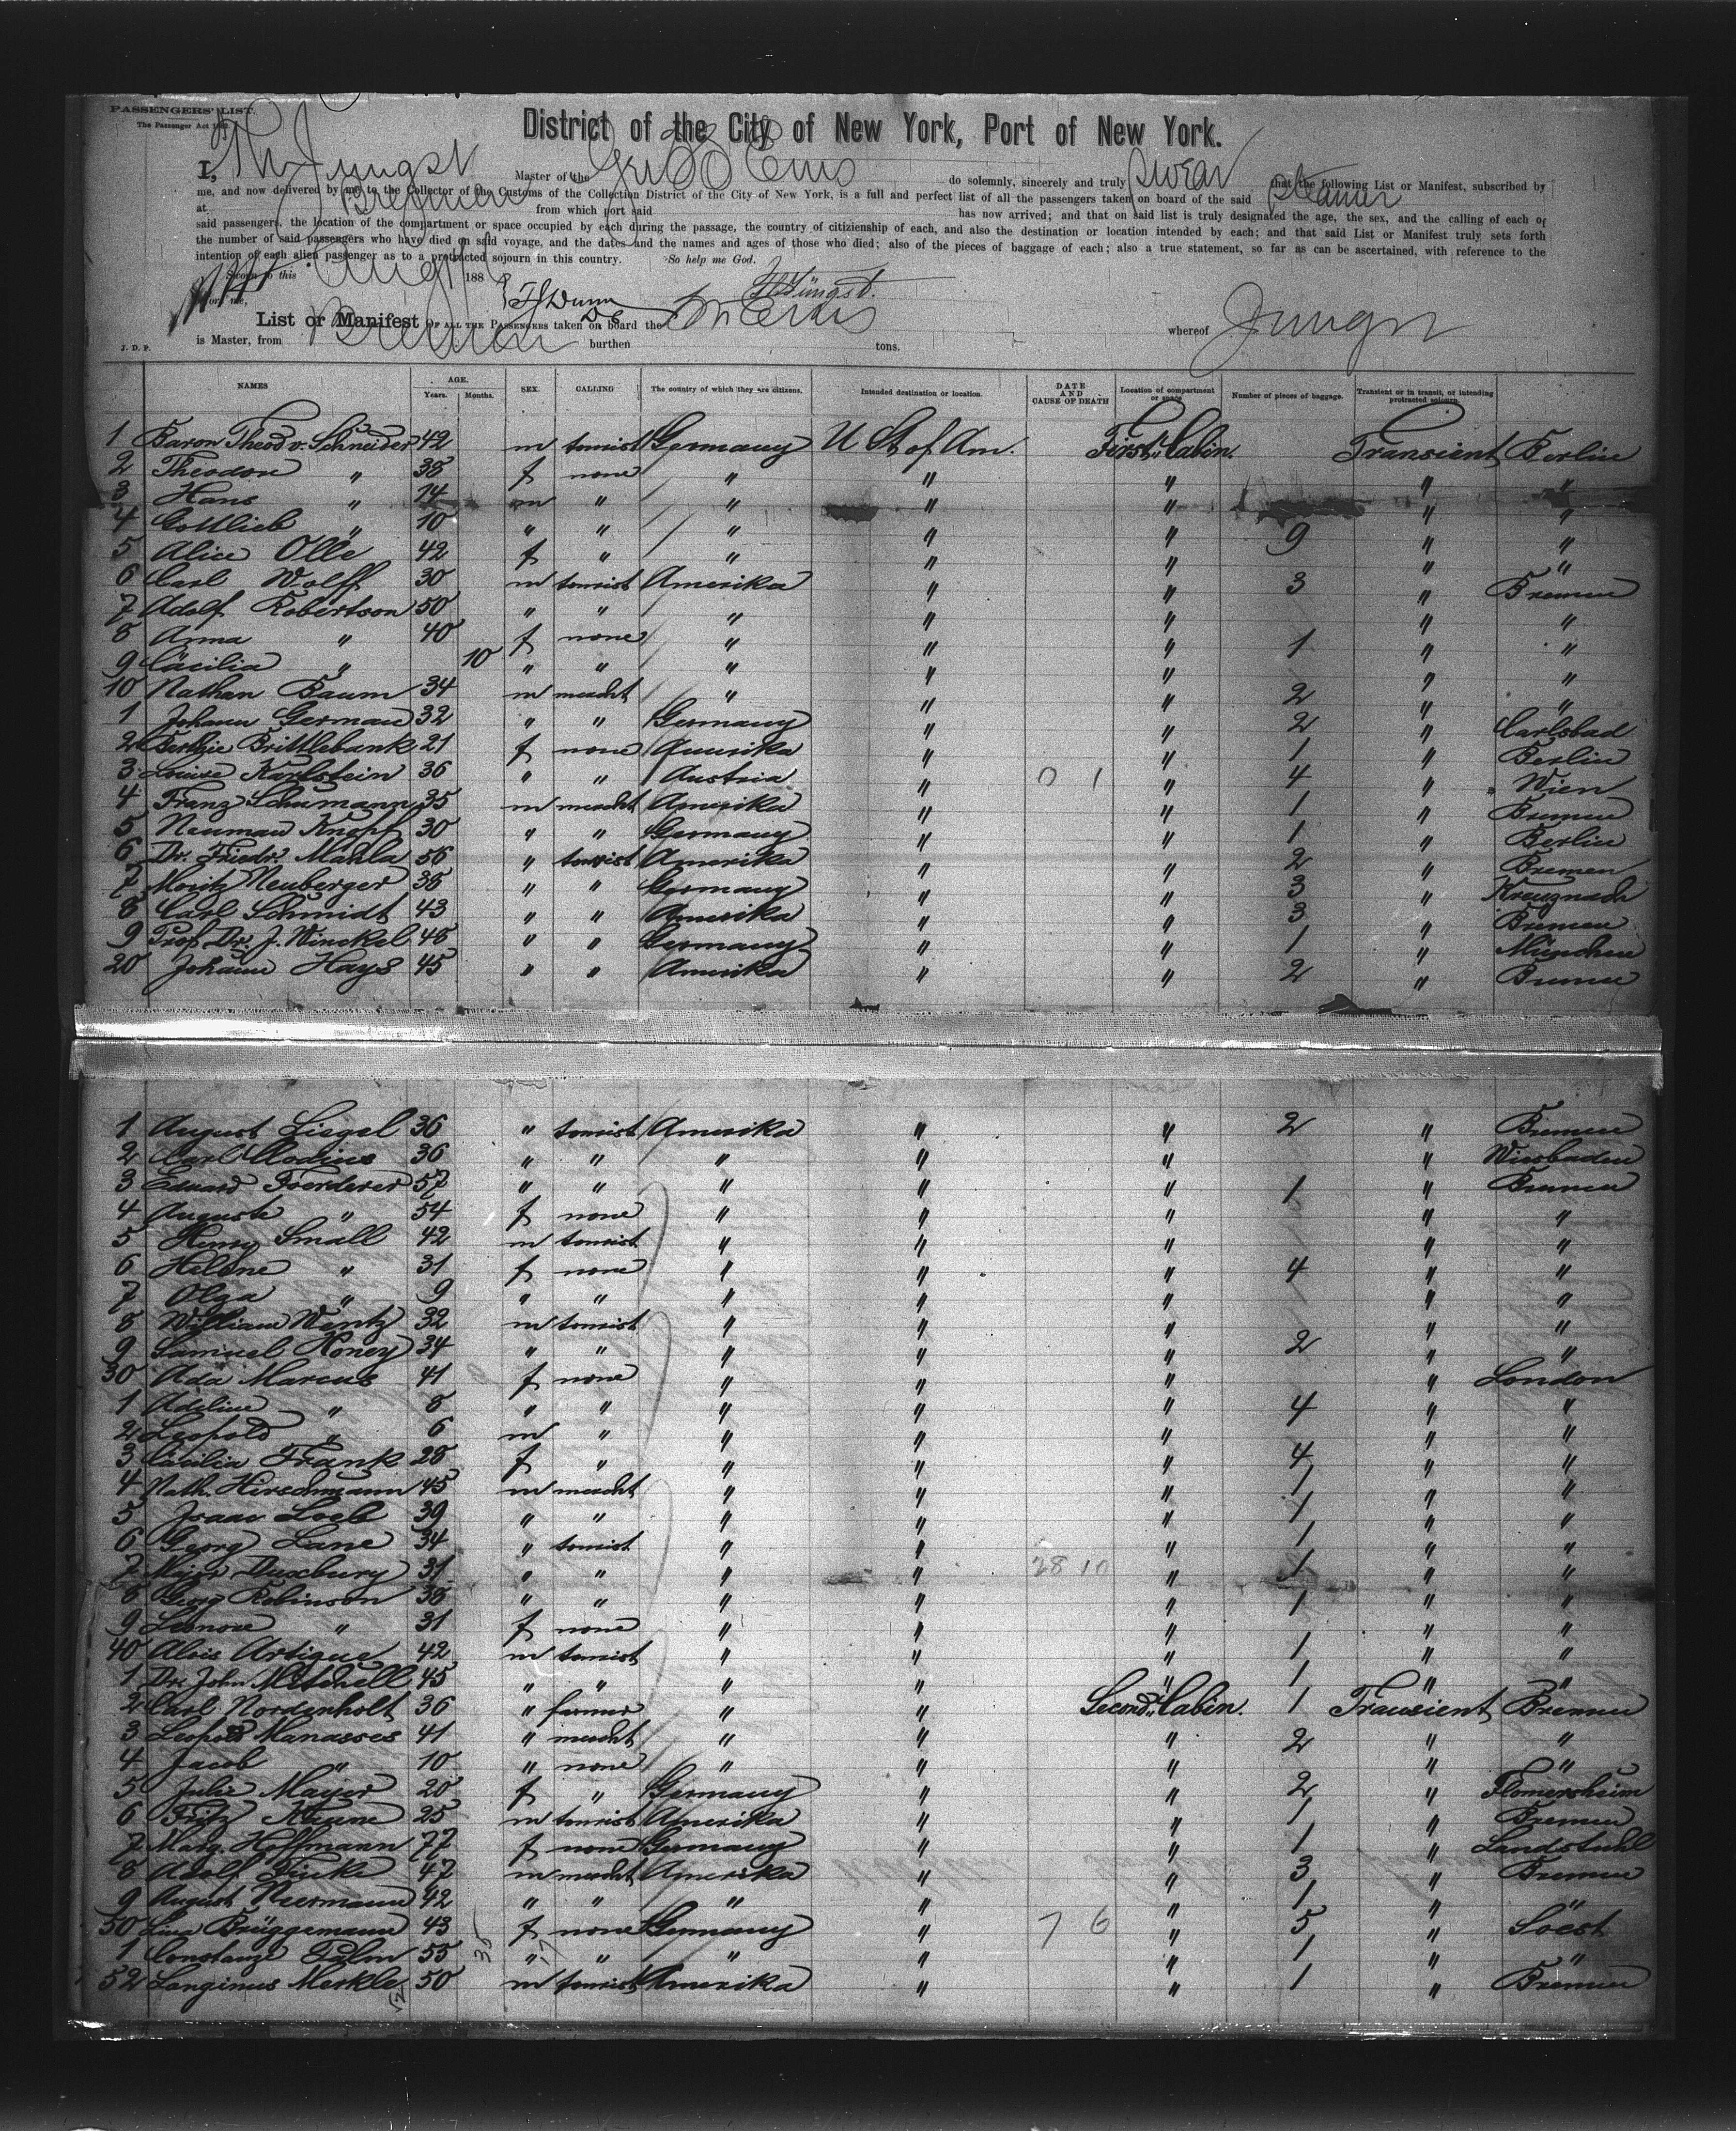 PASSENGERS' LIST.
The Passenger Act 1882.
District of the City of New York, Port of New York.
I, Th Jüngst Master of the Ger SS Ems do solemnly, sincerely and truly swear that the following List or Manifest, subscribed by
me, and now delivered by me to the Collector of the Customs of the Collection District of the City of New York, is a full and perfect list of all the passengers taken on board of the said steamer
at Bremen from which port said has now arrived; and that on said list is truly designated the age, the sex, and the calling of each of
said passengers, the location of the compartment or space occupied by each during the passage, the country of citizienship of each, and also the destination or location intended by each; and that said List or Manifest truly sets forth
the number of said passengers who have died on said voyage, and the dates and the names and ages of those who died; also of the pieces of baggage of each; also a true statement, so far as can be ascertained, with reference to the
intention of each alien passenger as to a protracted sojourn in this country. So help me God.
Sworn to this Aug 188 Th Jüngst.
before me,
List or Manifest OF ALL THE PASSENGERS taken on board the Ems whereof Jungst
is Master, from Bremen burthen tons.
J. D. P.
NAMES AGE. Years. Months. SEX. CALLING The country of which they are citizens. Intended destination or location. DATE AND CAUSE OF DEATH Location of compartment or space. Number of pieces of baggage. Transient or in transit, or intending protracted sojourn.
1 Baron Theod v. Schneider 42 m tourist Germany U St of Am. First Cabin. Transient Berlin
2 Theodor " 38 f none " " " " "
3 Hans " 14 m " " " " " "
4 Gottlieb " 10 " " " " " 9 " "
5 Alice Olle 42 f " " " " " "
6 Carl Wolff 30 m tourist Amerika " " 3 " Bremen
7 Adolf Robertson 50 " " " " " " "
8 Anna " 40 f none " " " 1 " "
9 Cäcilia " 10 " " " " " " "
10 Nathan Baum 34 m mercht " " " 2 " "
1 Johann German 32 " " Germany " " 2 " Carlsbad
2 Brittlebank 21 f none Amerika " " 1 " Berlin
3 Louise Karlstein 36 " " Austria " 0 1 " 4 " Wien
4 Franz Schumann 35 m mercht Amerika " " 1 " Bremen
5 Neuman Knopf 30 " " Germany " " 1 " Berlin
6 Dr. Friedr. Mahla 56 " tourist Amerika " " 2 " Bremen
7 Moritz Neuberger 38 " " Germany " " 3 " Kreuznach
8 Carl Schmidt 43 " " Amerika " " 3 " Bremen
9 Prof. Dr. J. Winckel 48 " " Germany " " 1 " München
20 Johann Hays 45 " " Amerika " " 2 " Bremen
1 August Siegel 36 " tourist Amerika " " 2 " Bremen
2 Carl Clodius 36 " " " " " " Wiesbaden
3 Eduard Foerderer 57 " " " " " 1 " Bremen
4 Auguste " 54 f none " " " " "
5 Henry Small 42 m tourist " " " " "
6 Helene " 31 f none " " " 4 " "
7 Olga " 9 " " " " " " "
8 William Wentz 32 m tourist " " " " "
9 Samuel Roney 34 " " " " " 2 " "
30 Ada Marcus 41 f none " " " " London
1 Adeline " 8 " " " " " 4 " "
2 Leopold " 6 m " " " " " "
3 Cäcilia Frank 28 f " " " " 4 " "
4 Nath. Hirschmann 45 m mercht " " " 1 " "
5 Isaac Loeb 39 " " " " " 1 " "
6 Georg Lane 34 " tourist " " " 1 " "
7 Major Duxbury 31 " " " " 28 10 " 1 " "
8 Georg Robinson 38 " " " " " 1 " "
9 Leonore " 31 f none " " " " "
40 Alois Artigue 42 m tourist " " " 1 " "
1 Dr. John Mitchell 45 " " " " " 1 " "
2 Carl Nordenholt 36 " farmer " " Second Cabin. 1 Transient Bremen
3 Leopold Manasses 41 " mercht " " " 2 " "
4 Jacob " 10 " none " " " " "
5 Julie Mayer 20 f " Germany " " 2 " Flomersheim
6 Fritz 25 m tourist Amerika " " 1 " Bremen
7 Marg. Hoffmann 77 f none Germany " " 1 " Landstuhl
8 Adolf 47 m mercht Amerika " " 3 " Bremen
9 August Neermann 42 " " " " " 1 " "
50 Lina Brüggemann 43 f none Germany " 7 6 " 5 " Soest
1 Constanze Palm 55 " " " " " 1 " "
52 Longinus Merkle 50 m tourist Amerika " " 1 " Bremen